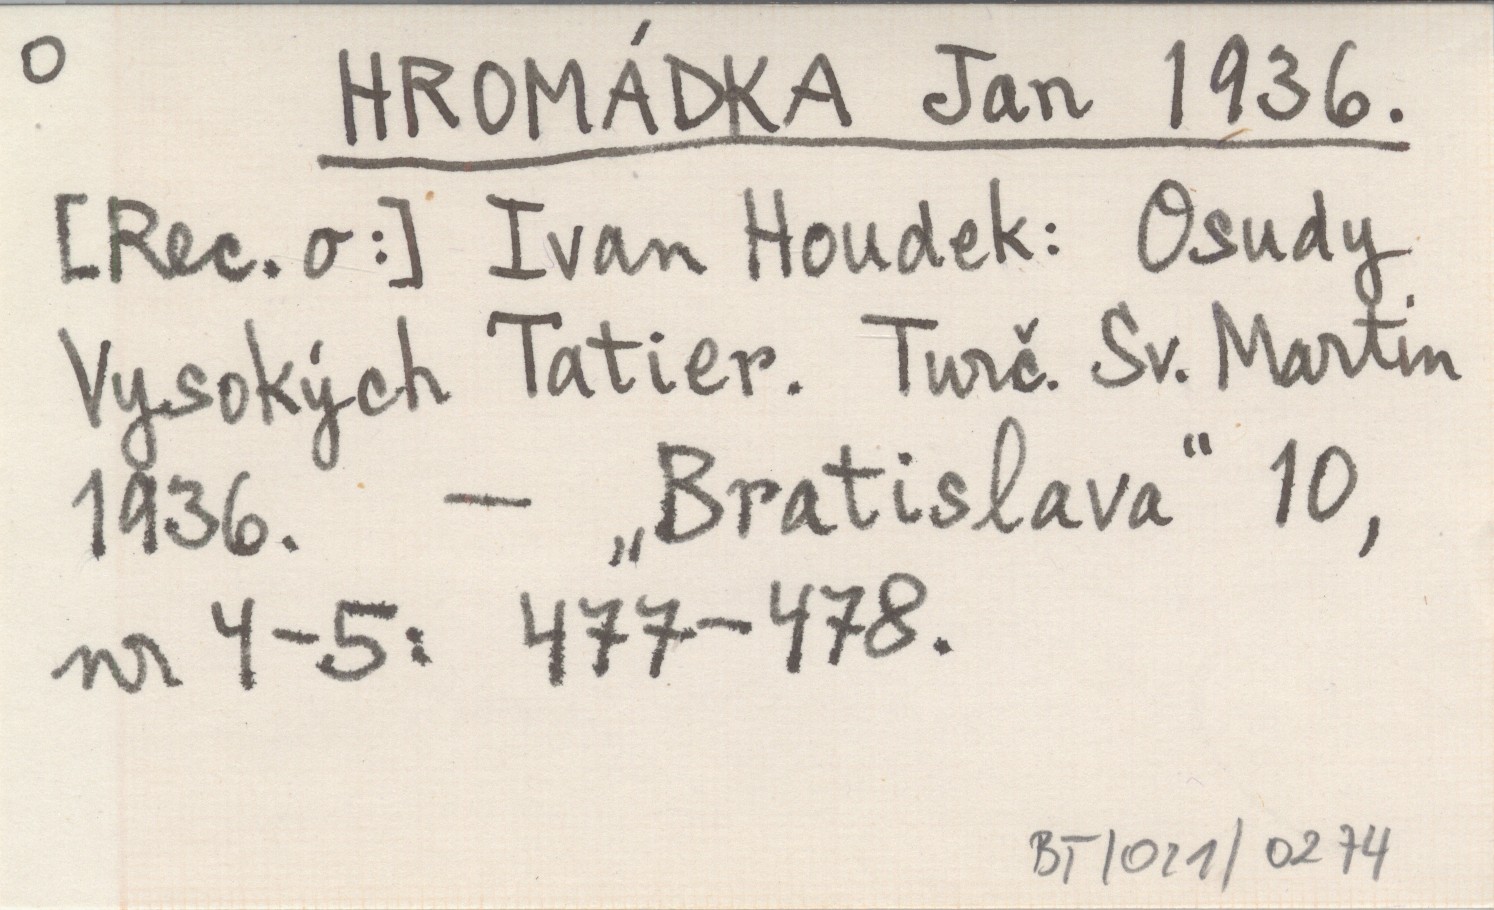 O
HROMÁDKA Jan 1936.
[Rec. o:] Ivan Houdek: Osudy
Vysokých Tatier. Turč. Sv. Martin
1936. — „Bratislava“ 10,
nr 4-5: 477-478.
BT/021/0274